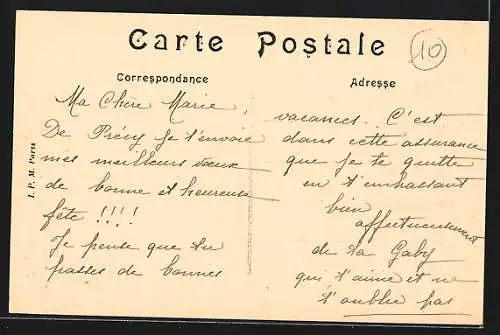 Carte Postale
10
Correspondance
Adresse
I. P. M. Paris
Ma Chère Marie,
De Précy je t'envoie
mes meilleurs vœux
de bonne et heureuse
fête !!!!
Je pense que tu
passes de bonnes
vacances. C'est
dans cette assurance
que je te quitte
en t'embrassant
bien
affectueusement
de ta Gaby
qui t'aime et ne
t'oublie pas